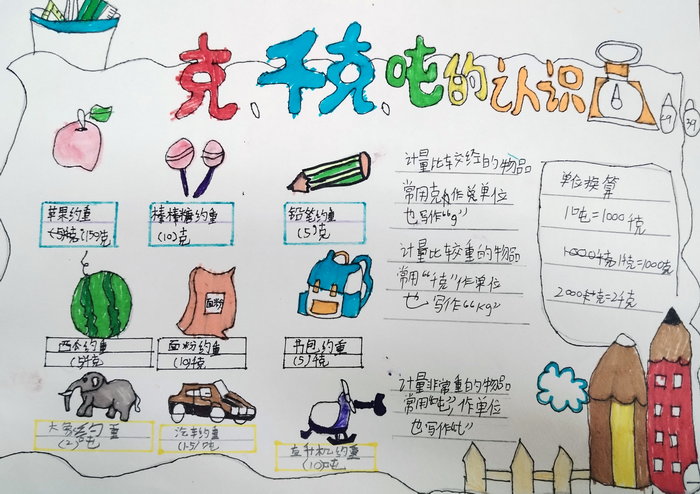 克、千克、吨的认识
苹果约重
(150)克
棒棒糖约重
(10)克
铅笔约重
(5)克
计量比较轻的物品
常用克作单位
也写作“g”
单位换算
1吨=1000千克
1千克=1000克
2000千克=2千克
面粉
西瓜约重
(5)千克
面粉约重
(10)千克
书包约重
(5)千克
计量比较重的物品
常用“千克”作单位
也写作“kg”
大象约重
(2)吨
汽车约重
(1.5)吨
直升机约重
(10)吨
计量非常重的物品
常用“吨”作单位
也写作“t”